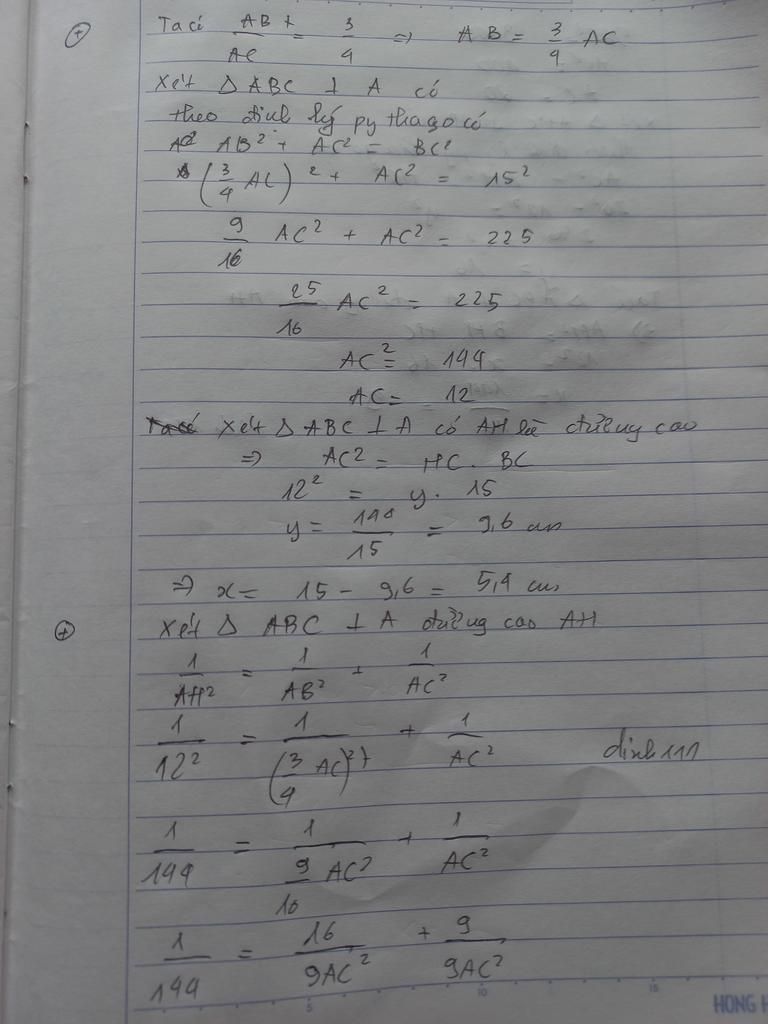 (+) Ta có AB/AC = 3/4 => AB = 3/4 AC
Xét Δ ABC ⊥ A có
theo định lý pythago có
AB² + AC² = BC²
(3/4 AC)² + AC² = 15²
9/16 AC² + AC² = 225
25/16 AC² = 225
AC² = 144
AC = 12
Xét Δ ABC ⊥ A có AH là đường cao
=> AC² = HC . BC
12² = y . 15
y = 144/15 = 9,6 cm
=> x = 15 - 9,6 = 5,4 cm
(+) Xét Δ ABC ⊥ A đường cao AH
1/AH² = 1/AB² + 1/AC²
1/12² = 1/(3/4 AC)² + 1/AC²
1/144 = 1/(9/16 AC²) + 1/AC²
1/144 = 16/9AC² + 9/9AC²
5 10 15
HONG H